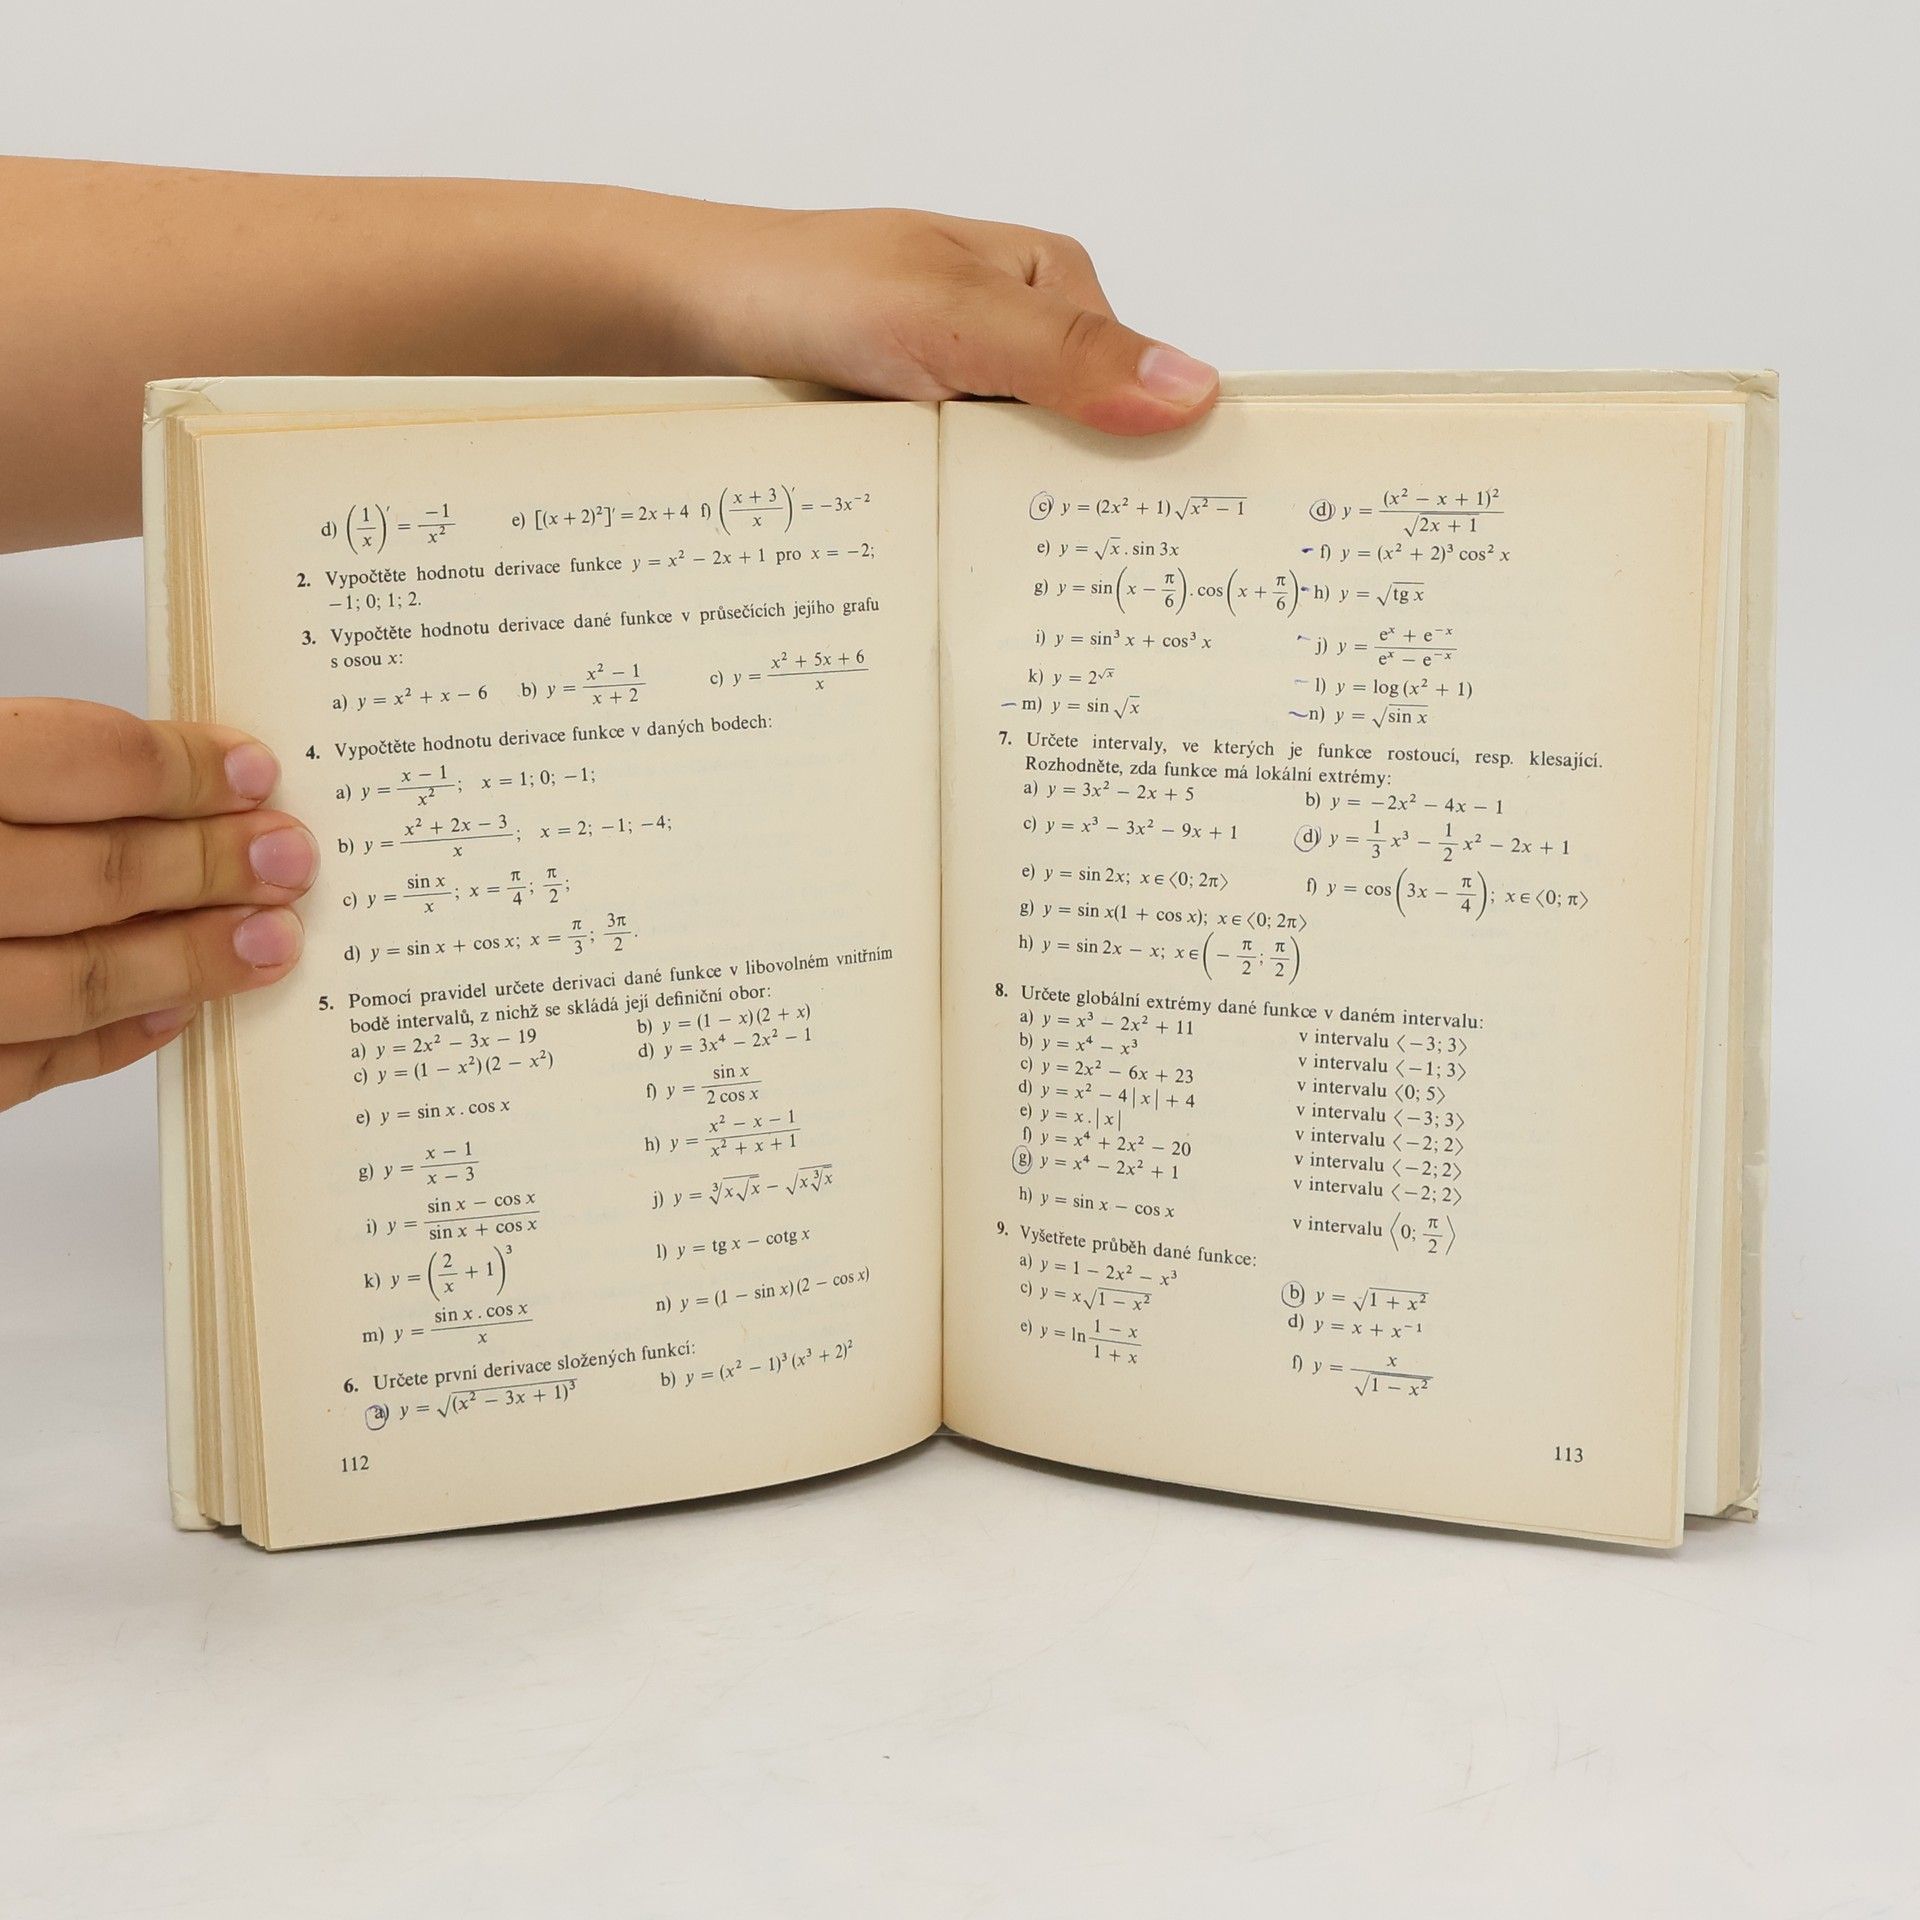 d) (1/x)′ = −1/x²   e) [(x + 2)²]′ = 2x + 4   f) ((x + 3)/x)′ = −3x⁻²
2. Vypočtěte hodnotu derivace funkce y = x² − 2x + 1 pro x = −2;
−1; 0; 1; 2.
3. Vypočtěte hodnotu derivace dané funkce v průsečících jejího grafu
s osou x:
a) y = x² + x − 6   b) y = (x² − 1)/(x + 2)   c) y = (x² + 5x + 6)/x
4. Vypočtěte hodnotu derivace funkce v daných bodech:
a) y = (x − 1)/x²; x = 1; 0; −1;
b) y = (x² + 2x − 3)/x; x = 2; −1; −4;
c) y = sin x/x; x = π/4; π/2;
d) y = sin x + cos x; x = π/3; 3π/2.
5. Pomocí pravidel určete derivaci dané funkce v libovolném vnitřním
bodě intervalů, z nichž se skládá její definiční obor:
a) y = 2x² − 3x − 19   b) y = (1 − x)(2 + x)
c) y = (1 − x²)(2 − x²)   d) y = 3x⁴ − 2x² − 1
e) y = sin x . cos x   f) y = sin x/(2 cos x)
g) y = (x − 1)/(x − 3)   h) y = (x² − x − 1)/(x² + x + 1)
i) y = (sin x − cos x)/(sin x + cos x)   j) y = ∛(x√x) − √(x∛x)
k) y = (2/x + 1)³   l) y = tg x − cotg x
m) y = (sin x . cos x)/x   n) y = (1 − sin x)(2 − cos x)
6. Určete první derivace složených funkcí:
a) y = √((x² − 3x + 1)³)   b) y = (x² − 1)³(x³ + 2)²
112
c) y = (2x² + 1)√(x² − 1)   d) y = (x² − x + 1)²/√(2x + 1)
e) y = √x . sin 3x   f) y = (x² + 2)³ cos² x
g) y = sin(x − π/6) . cos(x + π/6)   h) y = √(tg x)
i) y = sin³ x + cos³ x   j) y = (eˣ + e⁻ˣ)/(eˣ − e⁻ˣ)
k) y = 2^√x   l) y = log (x² + 1)
m) y = sin √x   n) y = √(sin x)
7. Určete intervaly, ve kterých je funkce rostoucí, resp. klesající.
Rozhodněte, zda funkce má lokální extrémy:
a) y = 3x² − 2x + 5   b) y = −2x² − 4x − 1
c) y = x³ − 3x² − 9x + 1   d) y = 1/3 x³ − 1/2 x² − 2x + 1
e) y = sin 2x; x∈⟨0; 2π⟩   f) y = cos(3x − π/4); x∈⟨0; π⟩
g) y = sin x(1 + cos x); x∈⟨0; 2π⟩
h) y = sin 2x − x; x∈(−π/2; π/2)
8. Určete globální extrémy dané funkce v daném intervalu:
a) y = x³ − 2x² + 11   v intervalu ⟨−3; 3⟩
b) y = x⁴ − x³   v intervalu ⟨−1; 3⟩
c) y = 2x² − 6x + 23   v intervalu ⟨0; 5⟩
d) y = x² − 4|x| + 4   v intervalu ⟨−3; 3⟩
e) y = x.|x|   v intervalu ⟨−2; 2⟩
f) y = x⁴ + 2x² − 20   v intervalu ⟨−2; 2⟩
g) y = x⁴ − 2x² + 1   v intervalu ⟨−2; 2⟩
h) y = sin x − cos x   v intervalu ⟨0; π/2⟩
9. Vyšetřete průběh dané funkce:
a) y = 1 − 2x² − x³   b) y = √(1 + x²)
c) y = x√(1 − x²)   d) y = x + x⁻¹
e) y = ln (1 − x)/(1 + x)   f) y = x/√(1 − x²)
113